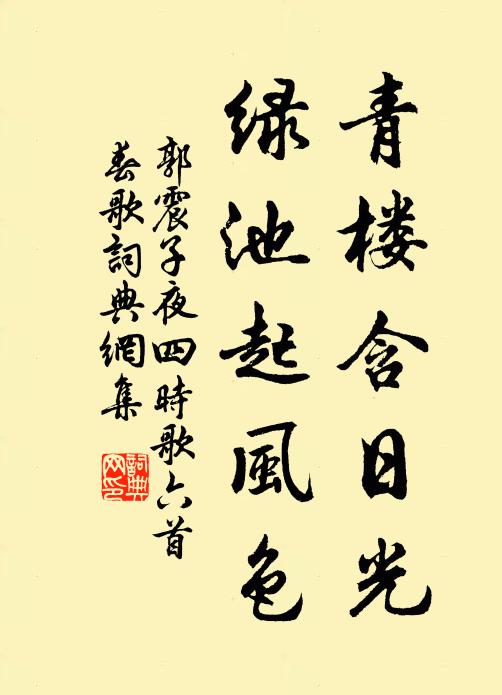 青楼含日光
绿池起風色
郭震子夜四時歌六首
春歌詞典網集
詞典网印